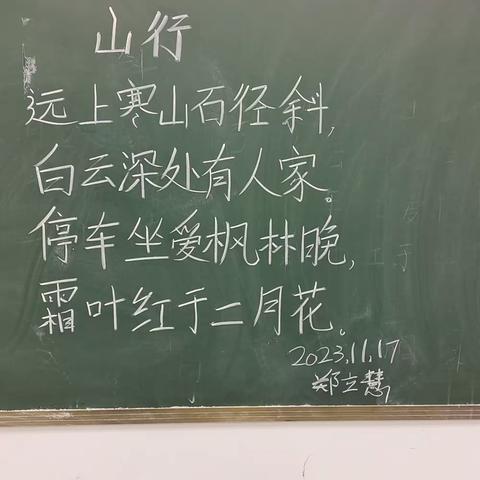 山行
远上寒山石径斜,
白云深处有人家。
停车坐爱枫林晚,
霜叶红于二月花。
2023.11.17
郑立慧